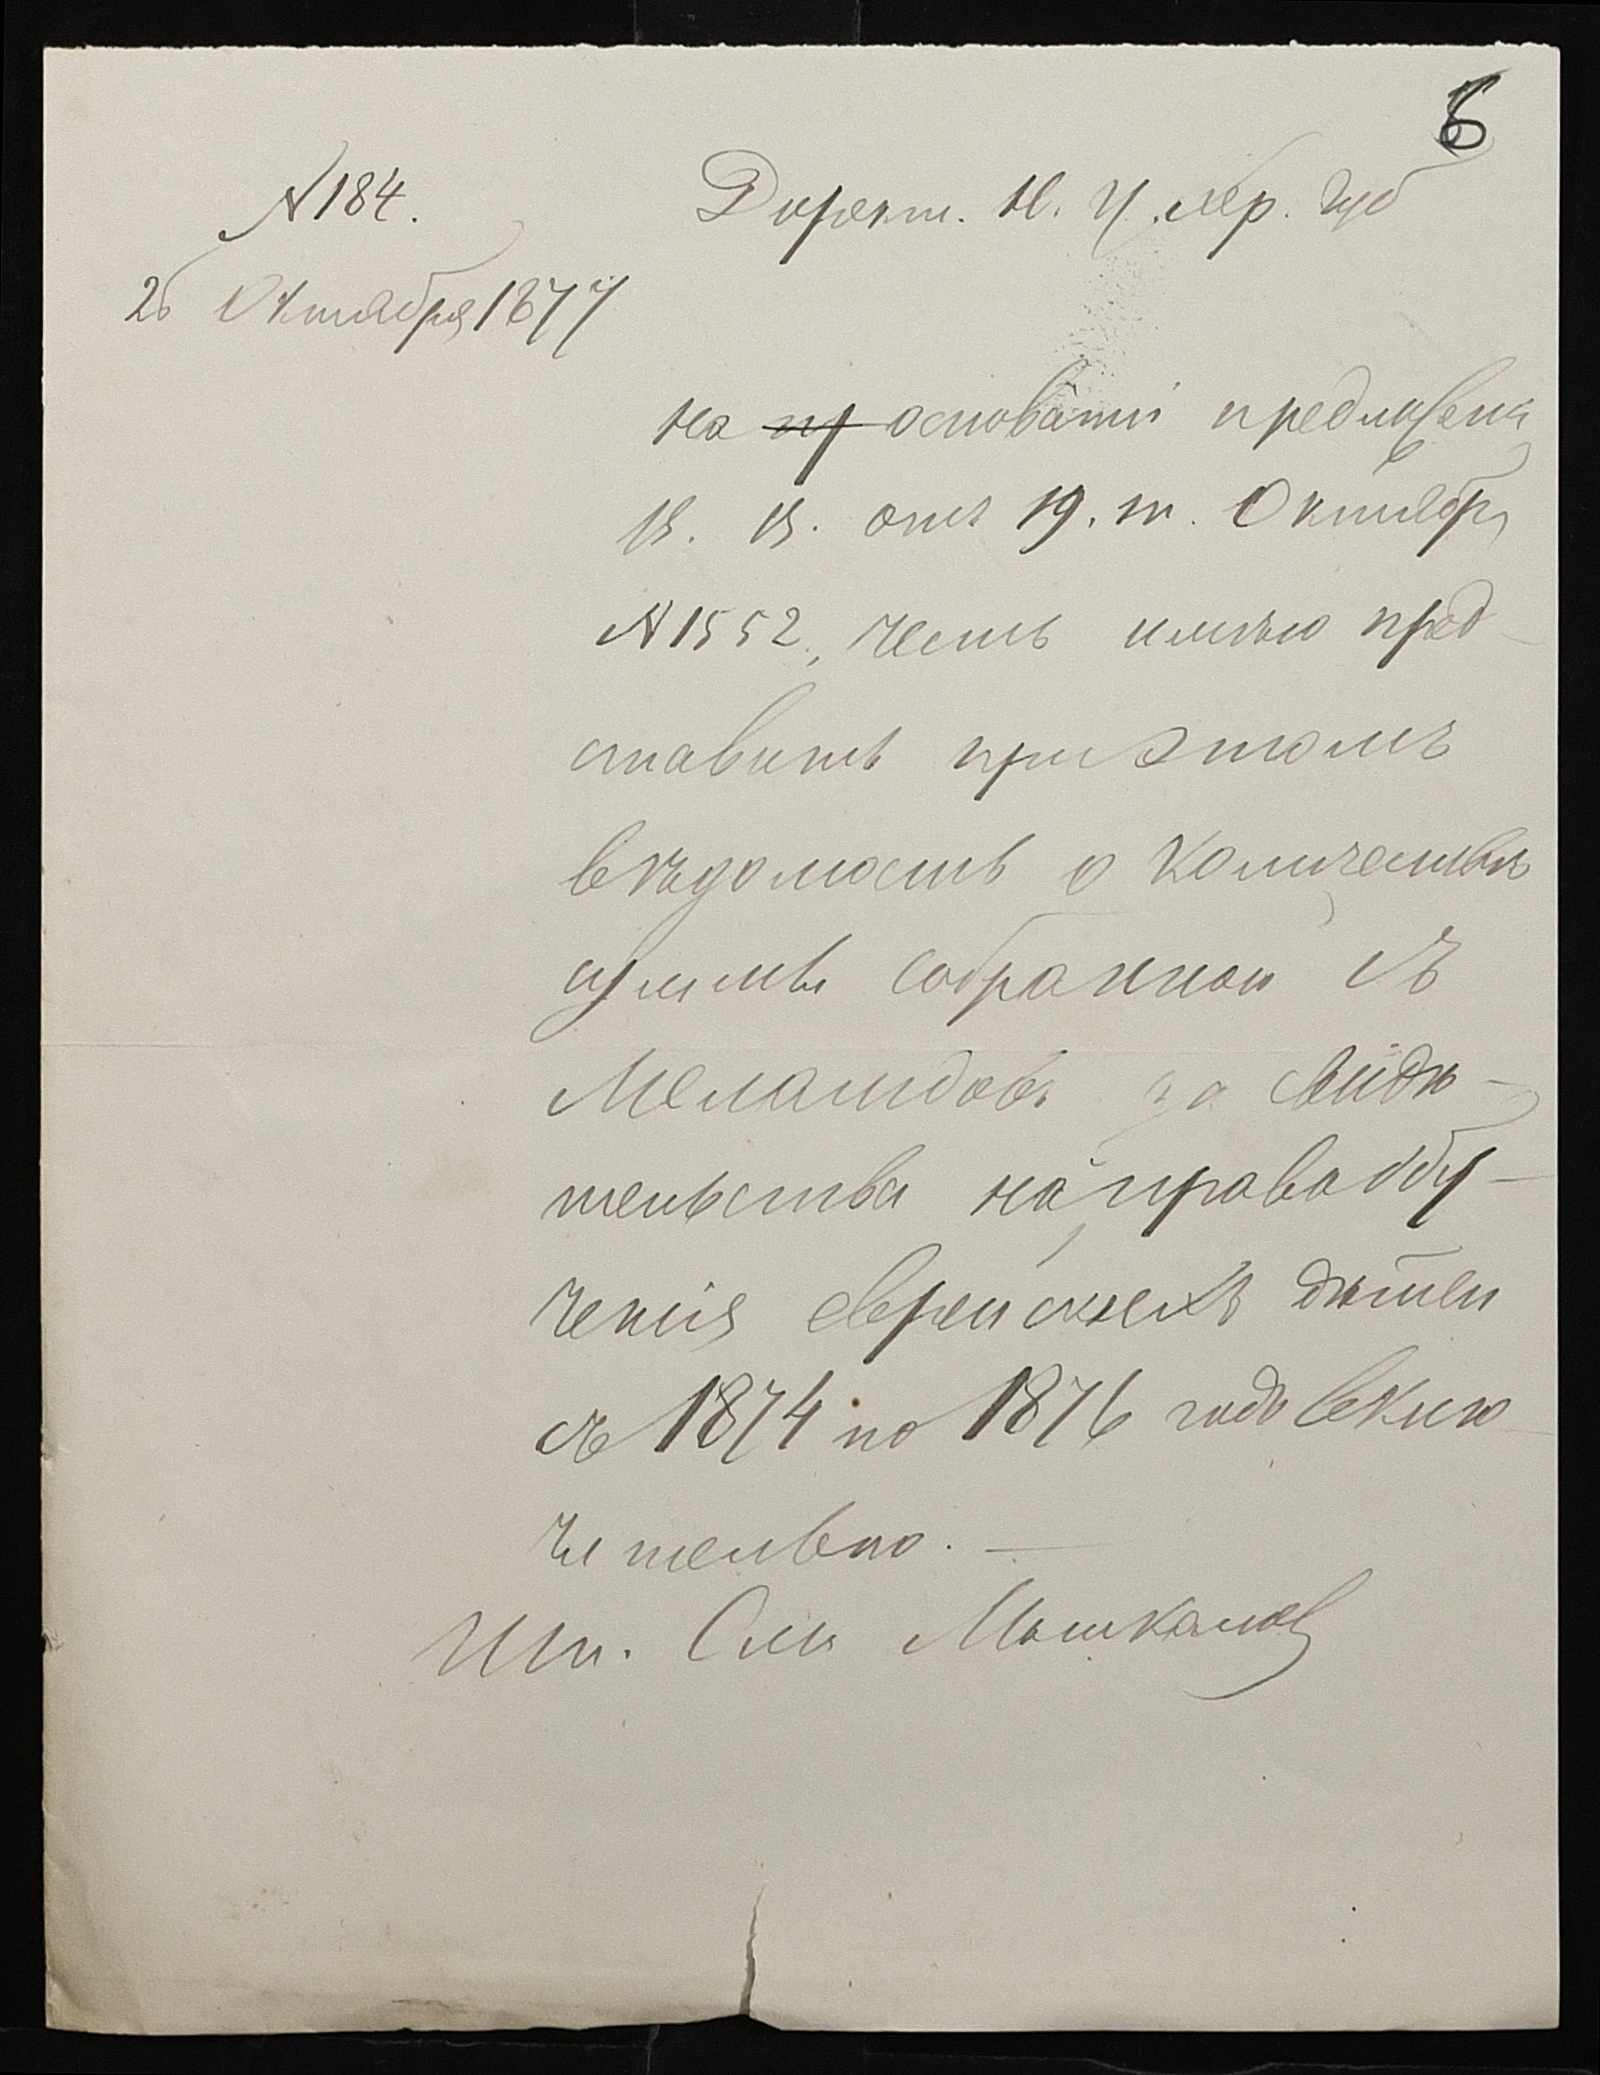 6
№ 184.
Директ. Н. У. Хер. Губ
26 Октября 1877
На пр основаніи предложенія
В. В. отъ 19. т. Октября
№ 1552, честь имѣю пред-
ставить при этомъ
вѣдомость о количествѣ
суммы собранной съ
Меламдовъ за свидѣ-
тельства на право обу-
ченія еврейскихъ дѣтей
съ 1874 по 1876 годъ вклю-
чительно. —
Шт. См.